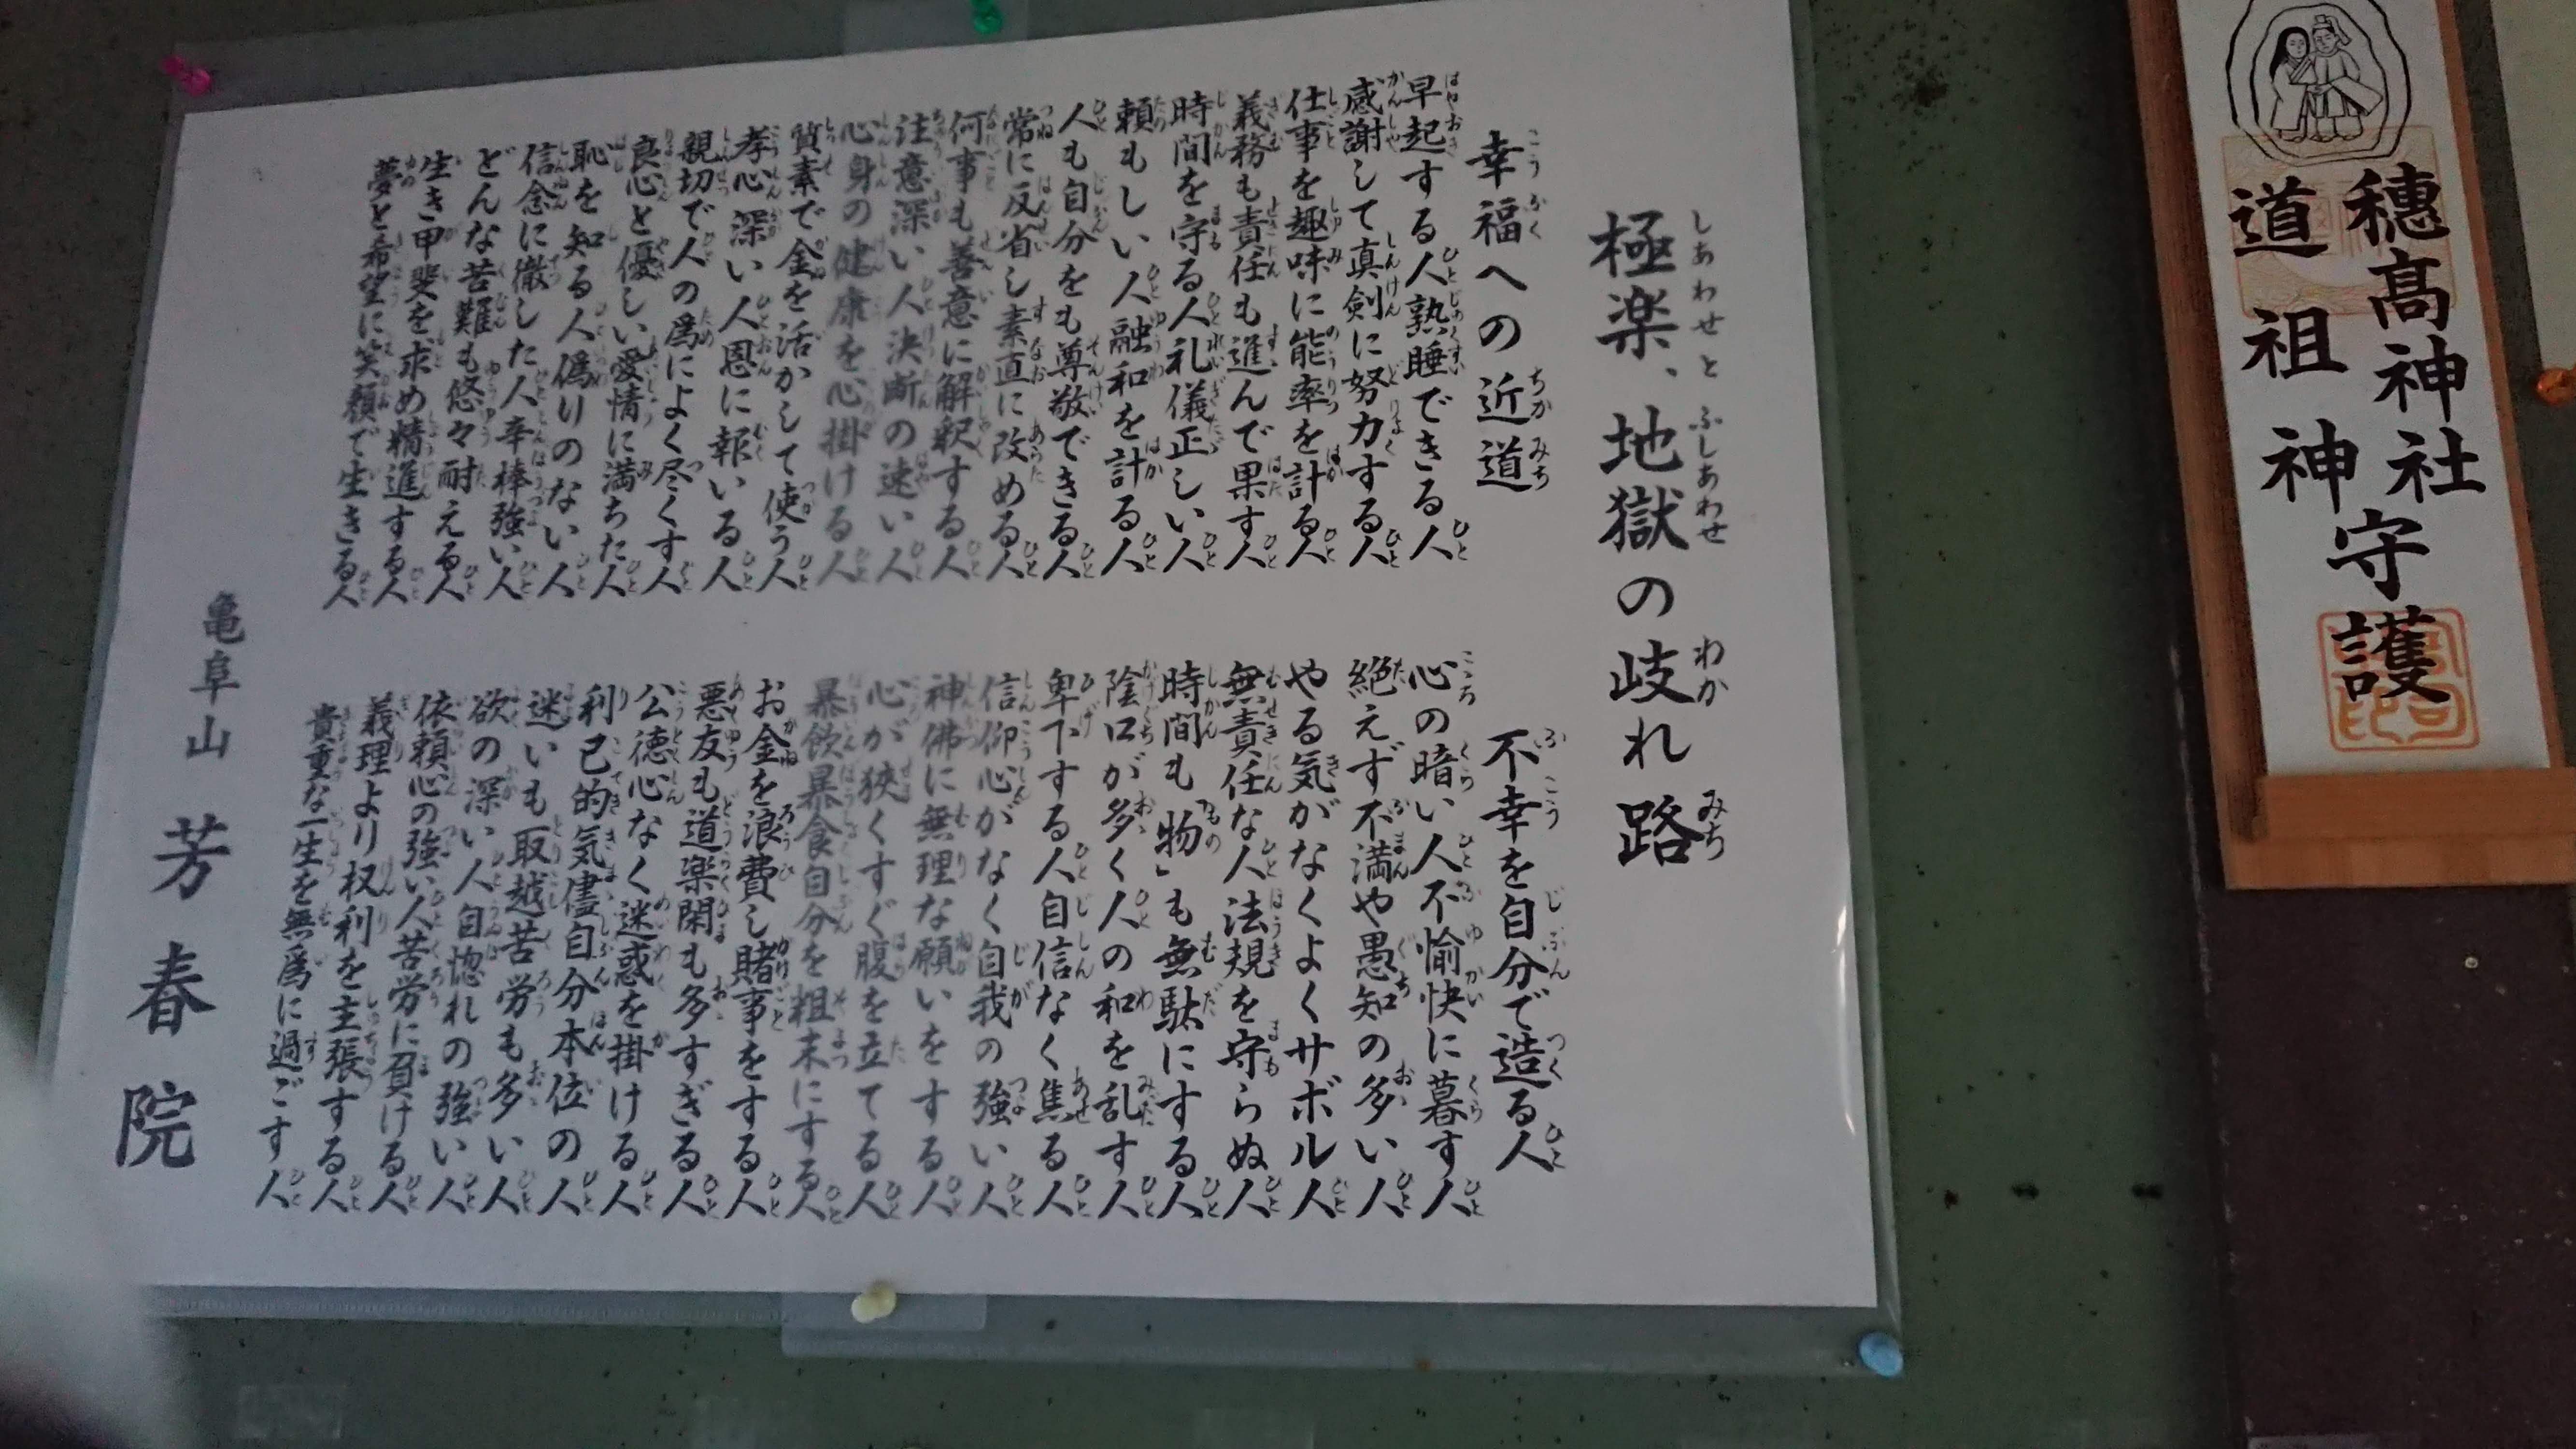 極楽、地獄の岐れ路
幸福への近道
早起する人熟睡できる人
感謝して真剣に努力する人
仕事を趣味に能率を計る人
義務も責任も進んで果す人
時間を守る人礼儀正しい人
頼もしい人融和を計る人
人も自分をも尊敬できる人
常に反省し素直に改める人
何事も善意に解釈する人
注意深い人決断の速い人
心身の健康を心掛ける人
質素で金を活かして使う人
孝心深い人恩に報いる人
親切で人の為によく尽くす人
良心と優しい愛情に満ちた人
恥を知る人偽りのない人
信念に徹した人辛棒強い人
どんな苦難も悠々耐える人
生き甲斐を求め精進する人
夢と希望に笑顔で生きる人
不幸を自分で造る人
心の暗い人不愉快に暮す人
絶えず不満や愚知の多い人
やる気がなくよくサボル人
無責任な人法規を守らぬ人
時間も「物」も無駄にする人
陰口が多く人の和を乱す人
卑下する人自信なく焦る人
信仰心がなく自我の強い人
神佛に無理な願いをする人
心が狭くすぐ腹を立てる人
暴飲暴食自分を粗末にする人
お金を浪費し賭事をする人
悪友も道楽閑も多すぎる人
公徳心なく迷惑を掛ける人
利己的気儘自分本位の人
迷いも取越苦労も多い人
欲の深い人自惚れの強い人
依頼心の強い人苦労に負ける人
義理より权利を主張する人
貴重な一生を無為に過ごす人
亀阜山 芳春院
穂高神社守護
道祖神